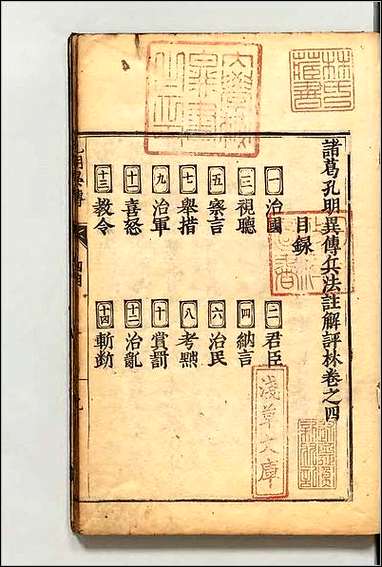 諸葛孔明異傳兵法註解評林卷之四
目録
一 治國 二 君臣
三 視聽 四 納言
五 察言 六 治民
七 舉措 八 考黜
九 治軍 十 賞罰
十一 喜怒 十二 治亂
十三 教令 十四 斬斷
淺草文庫
林氏藏書